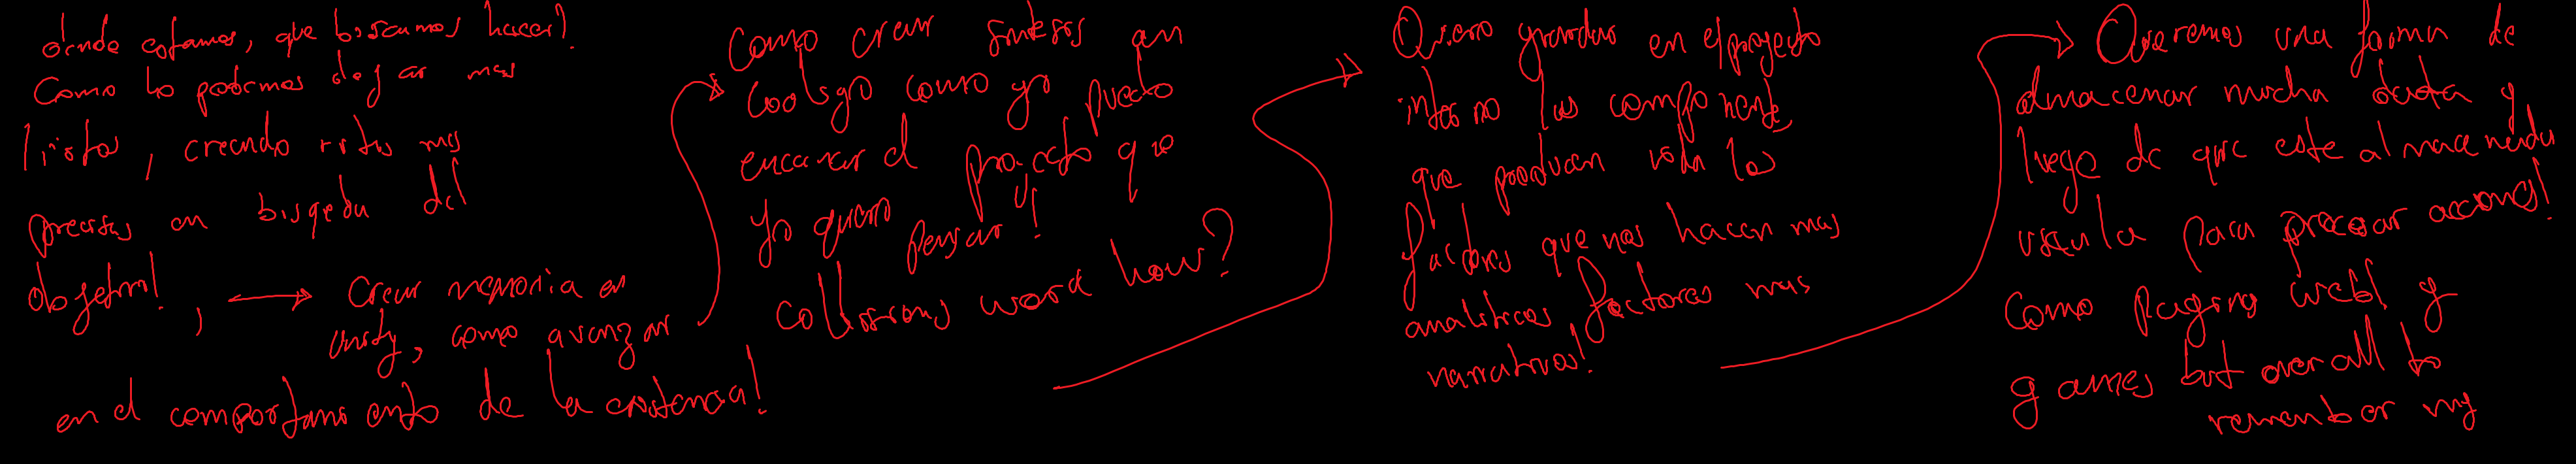 donde estamos, que buscamos hacer?
Como lo podemos dejar mas
listos, creando rutas mas
precisas en busqeda del
objetivo!, Crear memoria en
unity, como avanzar
en el comportamiento de la existencia!
Como crear sintesis en
como yo puedo
encarar el proyecto que
yo quiero pensar!
Collissions work how?
Quiero guardar en el proyecto
interno las componentes,
que produzcan los
factores que nos hacen mas
analiticos, factores mas
narrativos!
Queremos una forma de
almacenar mucha data y
luego de que este almacenada
usarla para procesar acciones!
Como paginas web! y
games but overall to
remember my